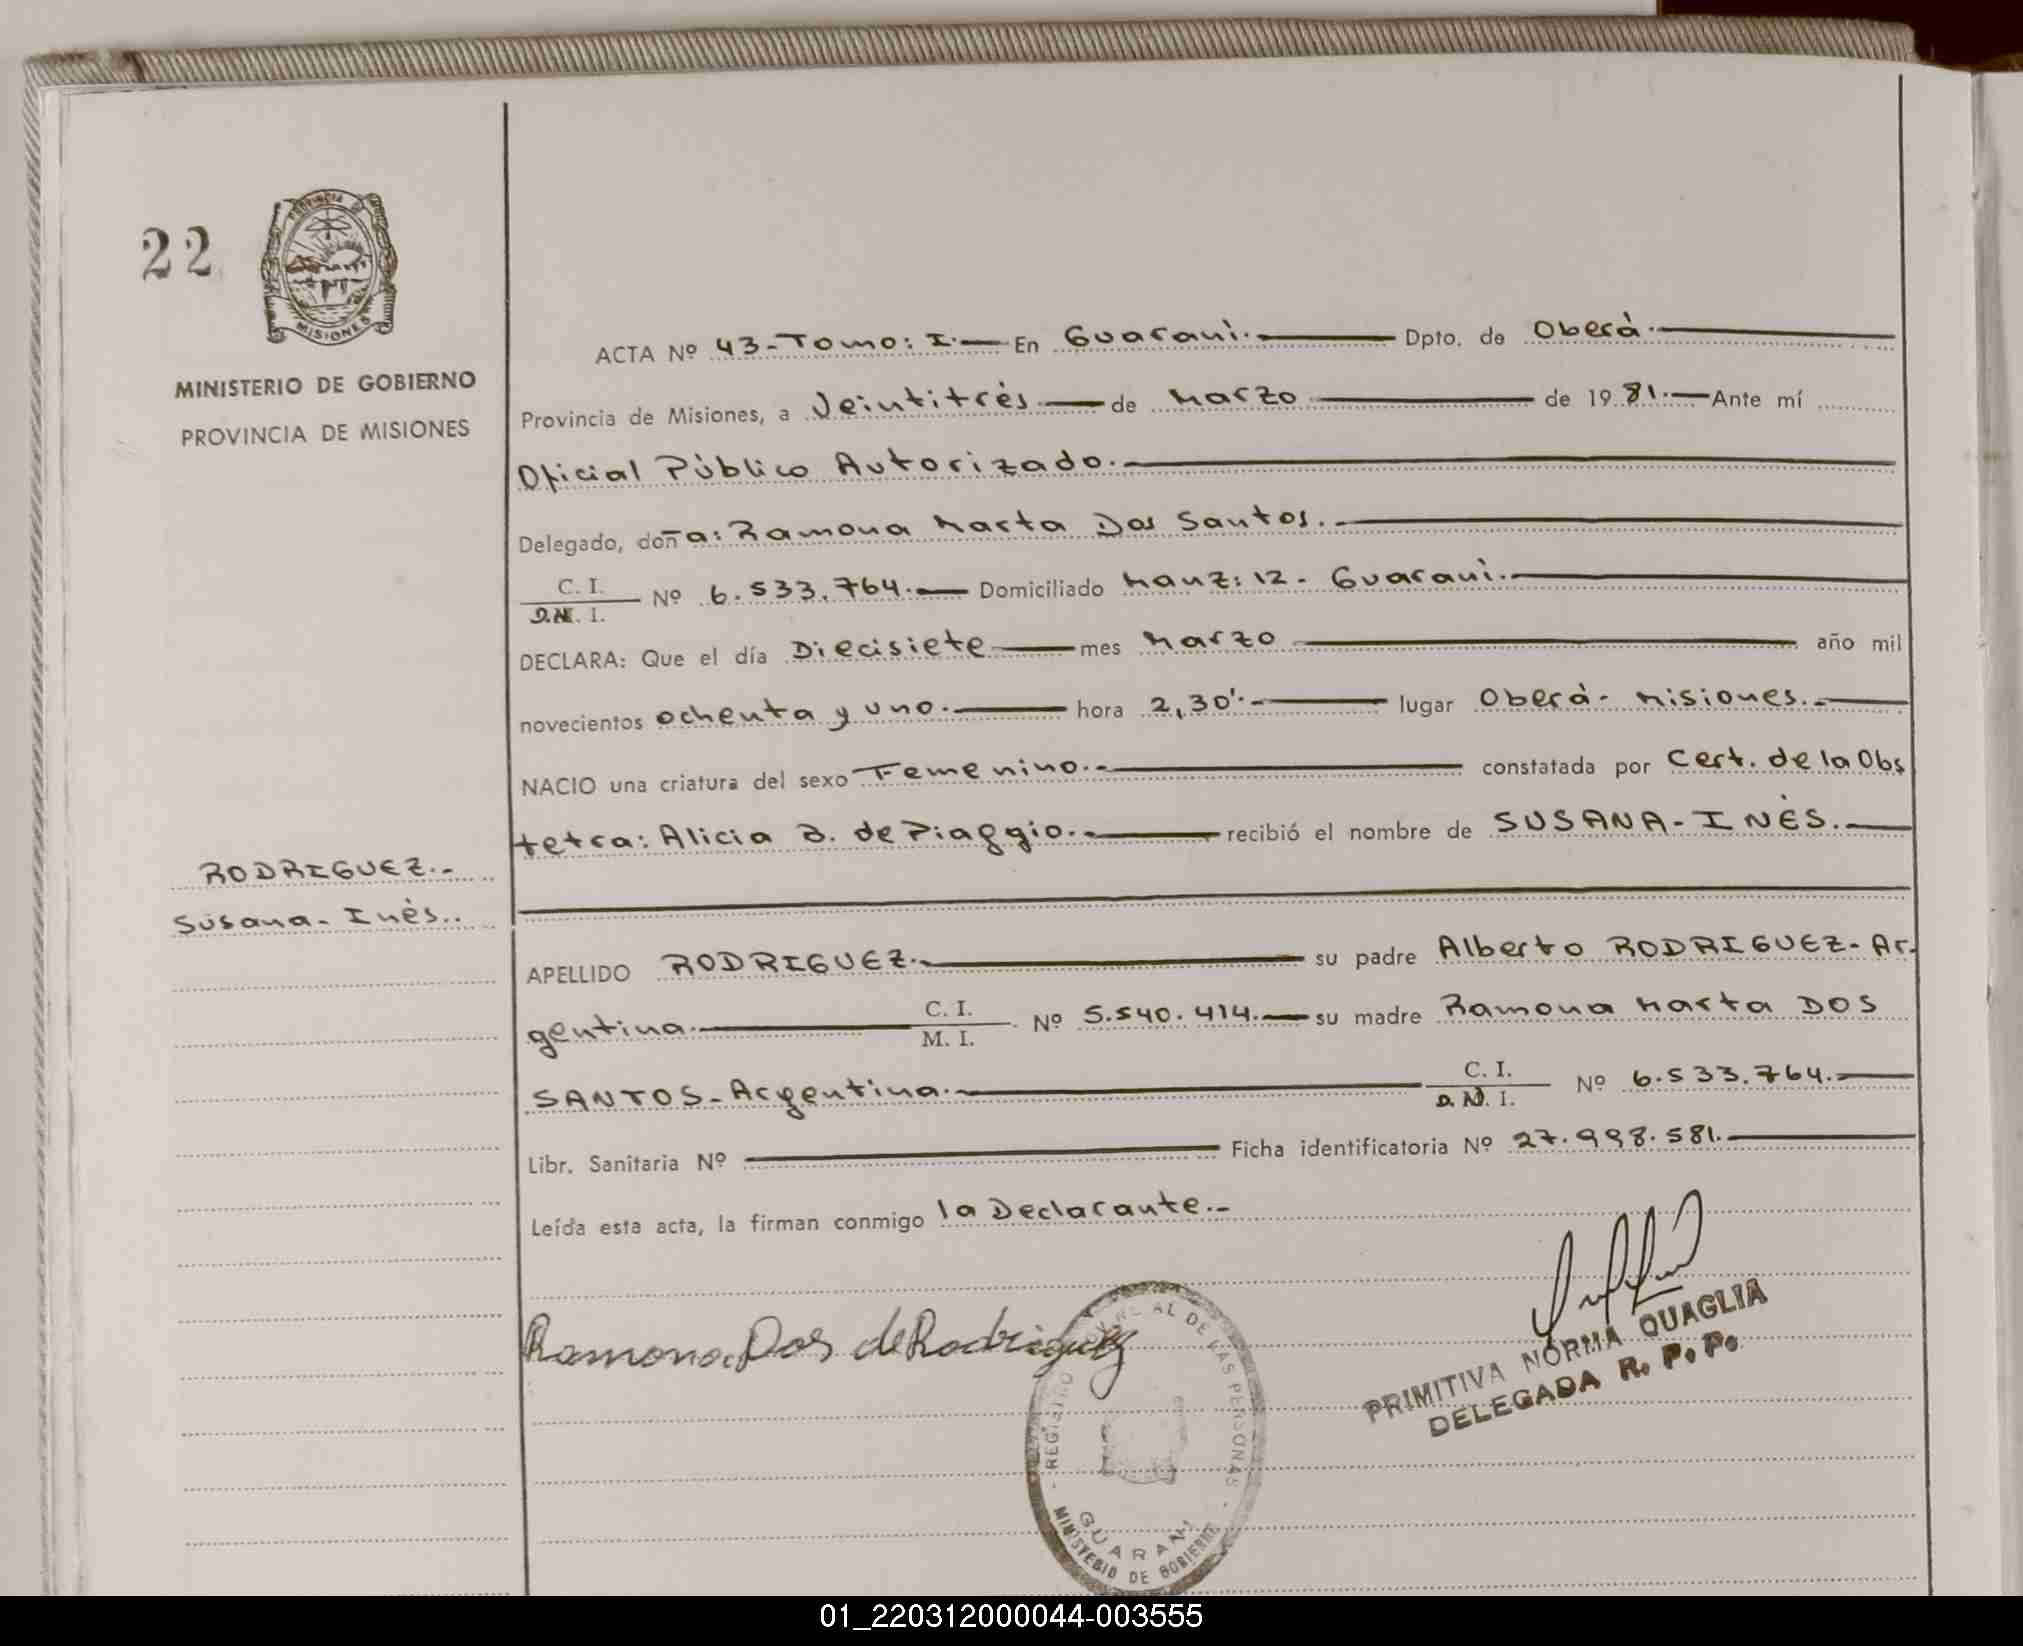 22
PROVINCIA DE
MISIONES
MINISTERIO DE GOBIERNO
PROVINCIA DE MISIONES
ACTA Nº 43-Tomo: I.— En Guaraní.— Dpto. de Oberá.—
Provincia de Misiones, a Veintitrés.— de Marzo — de 1981.— Ante mí
Oficial Público Autorizado.—
Delegado, doña: Ramona Marta Dos Santos.—
C. I.
D.N. I. Nº 6.533.764.— Domiciliado Manz: 12 - Guaraní.—
DECLARA: Que el día Diecisiete.— mes Marzo — año mil
novecientos ochenta y uno.— hora 2,30'.— lugar Oberá - Misiones.—
NACIO una criatura del sexo Femenino.— constatada por Cert. de la Obs
tetra: Alicia B. de Piaggio.— recibió el nombre de SUSANA-INÉS.—
RODRIGUEZ.-
Susana-Inés..
APELLIDO RODRIGUEZ.— su padre Alberto RODRIGUEZ- Ar-
gentina.— C. I.
M. I. Nº 5.540.414.— su madre Ramona Marta DOS
SANTOS-Argentina.— C. I.
D.N. I. Nº 6.533.764.—
Libr. Sanitaria Nº — Ficha identificatoria Nº 27.998.581.—
Leída esta acta, la firman conmigo la Declarante.-
Ramona Dos de Rodriguez
REGISTRO PROVINCIAL DE LAS PERSONAS
GUARANI
MINISTERIO DE GOBIERNO
PRIMITIVA NORMA QUAGLIA
DELEGADA R. P. P.
01_220312000044-003555